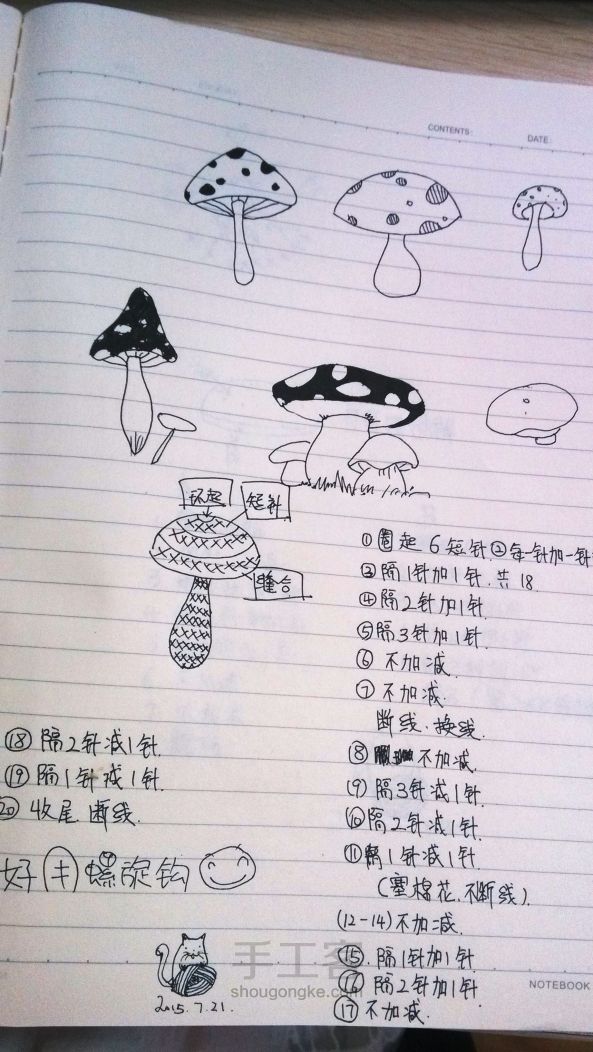 CONTENTS:
DATE:
环起
短针
缝合
① 圈起 6 短针.② 每一针加一针
③ 隔1针加1针.共18
④ 隔2针加1针.
⑤ 隔3针加1针.
⑥ 不加减.
⑦ 不加减.
断线.换线.
⑧ 不加减.
(9) 隔3针减1针.
⑩ 隔2针减1针.
⑪ 隔1针减1针
(塞棉花.不断线).
(12-14) 不加减.
⑮. 隔1针加1针.
⑯ 隔2针加1针.
⑰ 不加减.
⑱ 隔2针减1针.
⑲ 隔1针减1针.
⑳ 收尾 断线.
螺旋钩
2015.7.21.
手工客
shougongke.com
NOTEBOOK